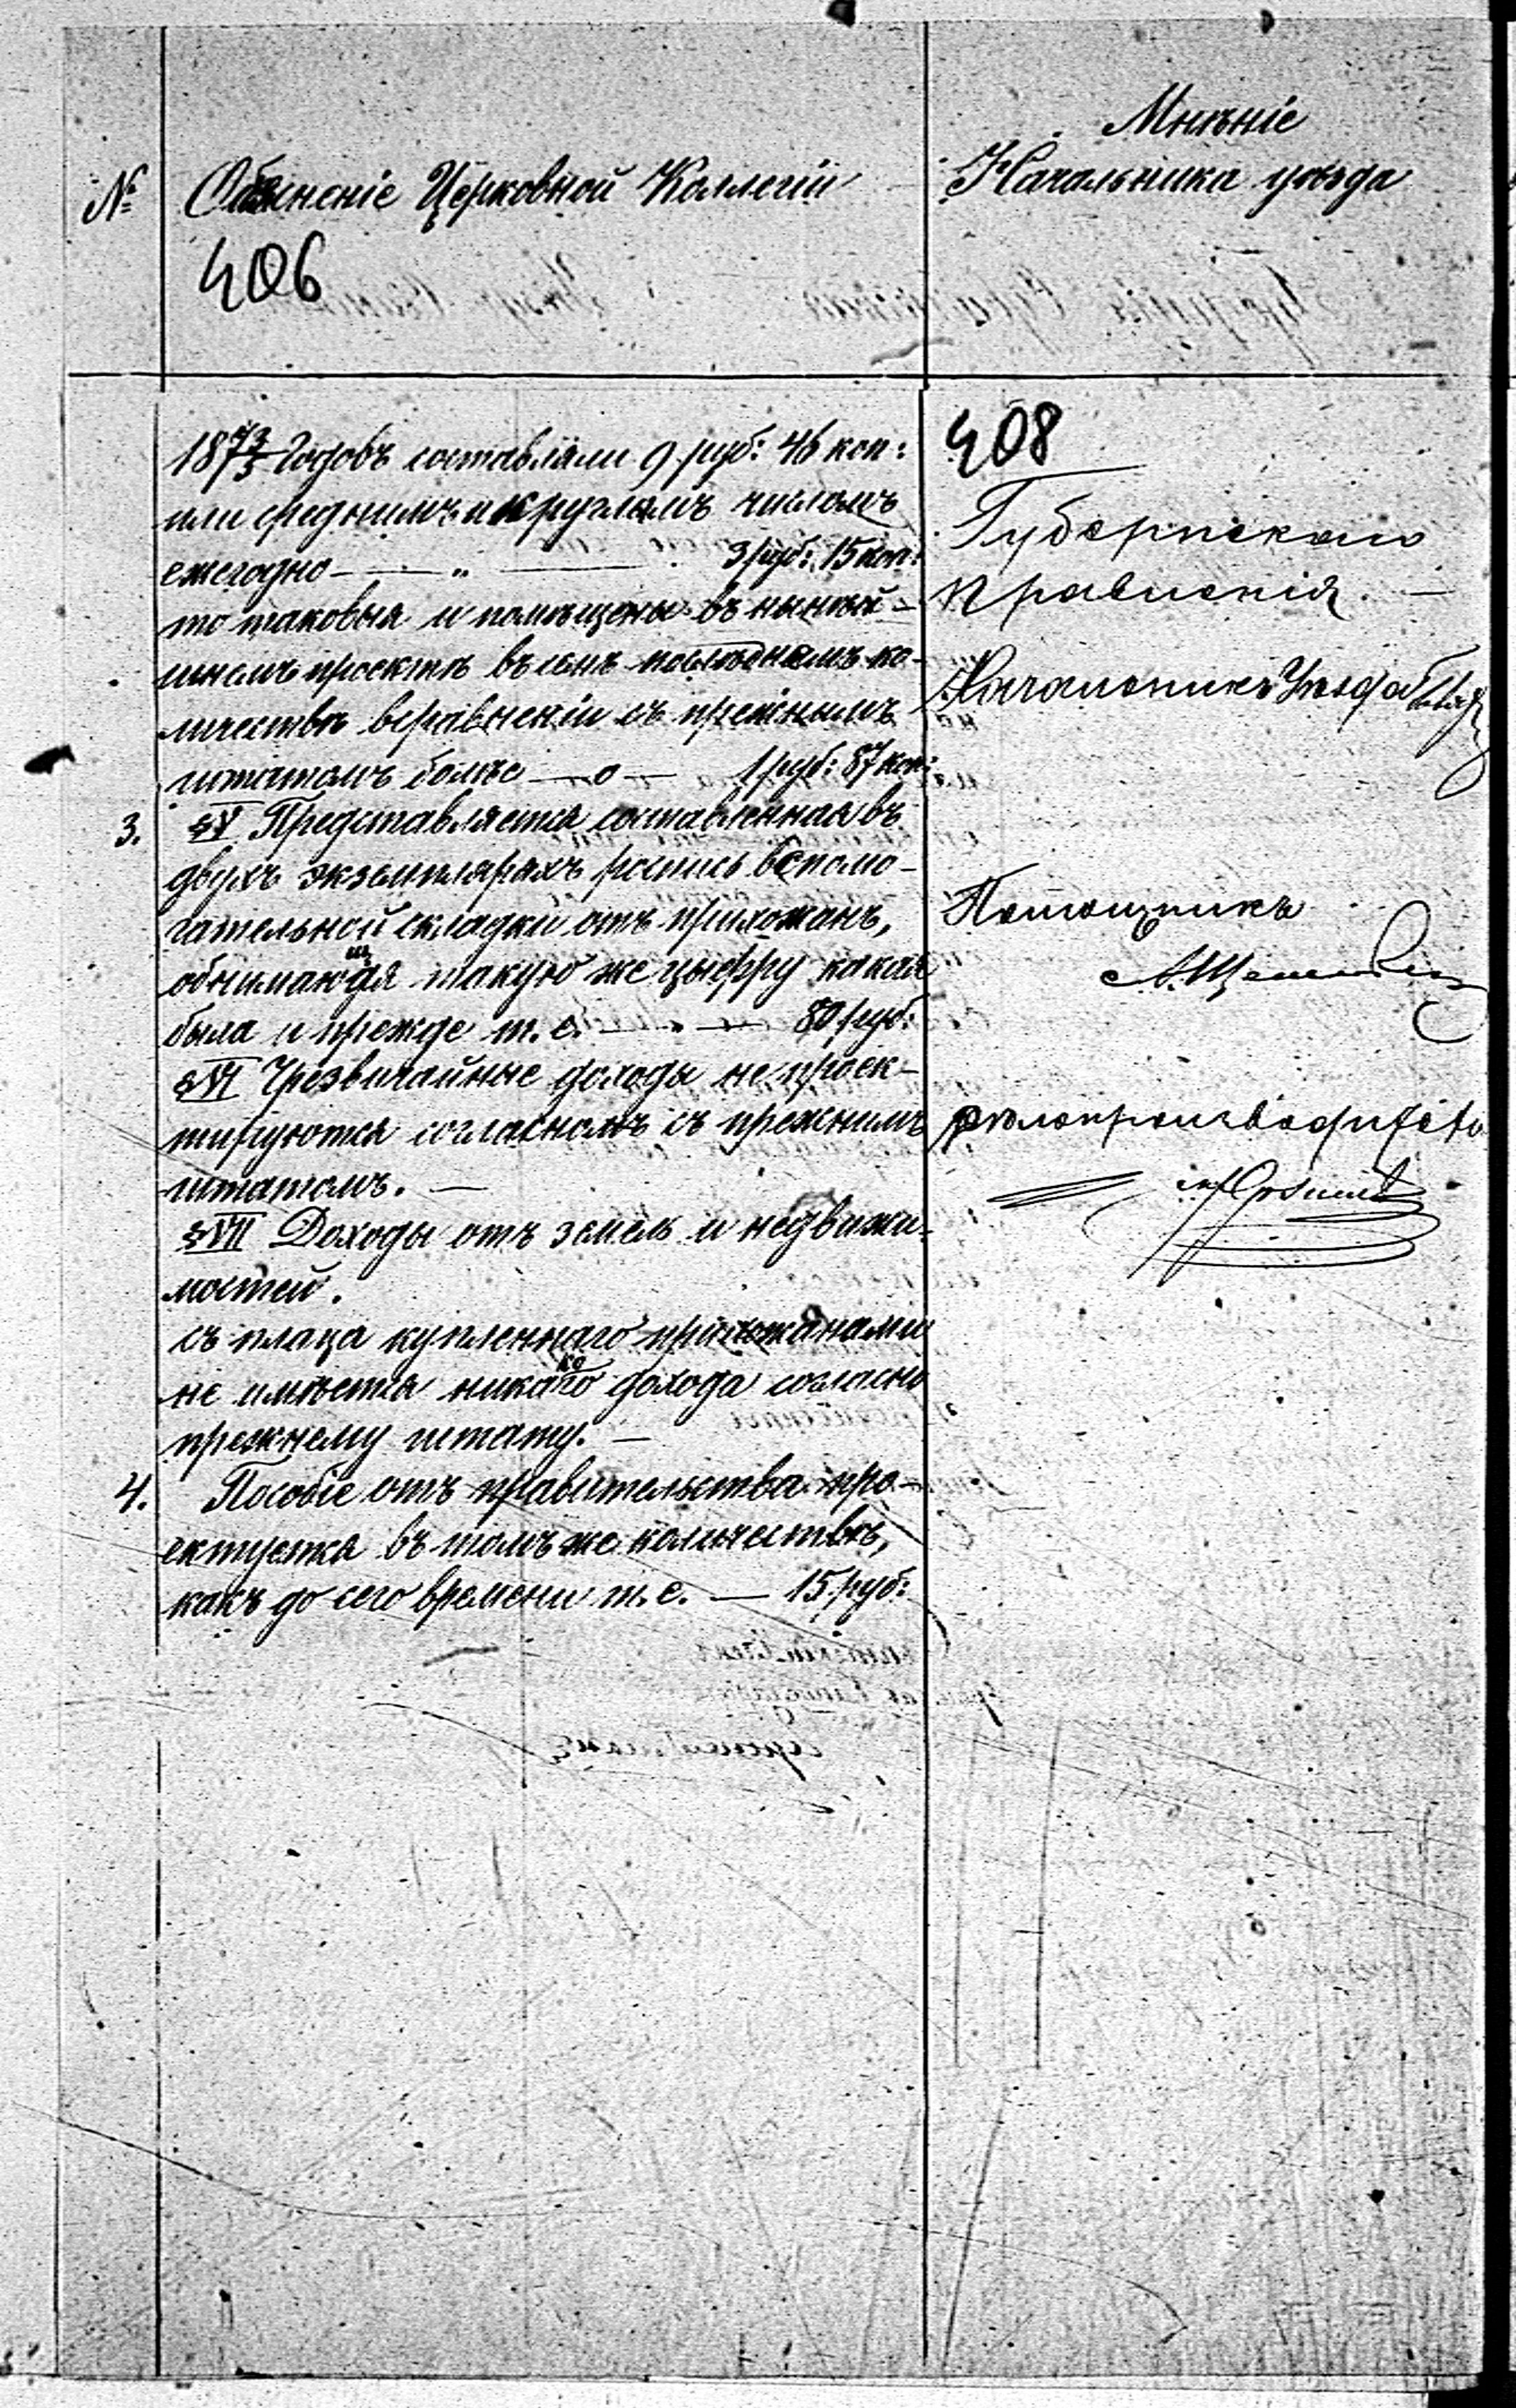 №
Объясненіе Церковной Коллегіи
406
Мнѣніе
Начальника уѣзда
187 3/5 Годовъ составляли 9 руб: 46 коп:
или среднимъ и круглымъ числомъ
ежегодно — „ — 3 руб: 15 коп:
то таковыя и помѣщены въ нынѣй-
шнемъ проектѣ въ семъ послѣднемъ ко-
личествѣ всравненіи съ прежнимъ
штатомъ болѣе — о — 1 руб: 87 коп:
3. § V Представляется составленная въ
двухъ экземплярахъ роспись вспомо-
гательной складки отъ прихожанъ,
обнимающая такую же цыфру какая
была и прежде т. е. — „ — 80 руб:
§ VI Чрезвычайные доходы не проек-
тируются согласномъ съ прежнимъ
штатомъ. —
§ VII Доходы отъ земель и недвижи-
мостей.
съ плаца купленнаго прихожанами
не имѣется никакого дохода согласно
прежнему штату. —
4. Пособіе отъ правительства про-
ектуется въ томъ же количествѣ,
какъ до сего времени т. е. — 15 руб:
408
Губернскаго
Правленія. —
Начальникъ Уѣзда
Помощникъ
Дѣлопроизводитель